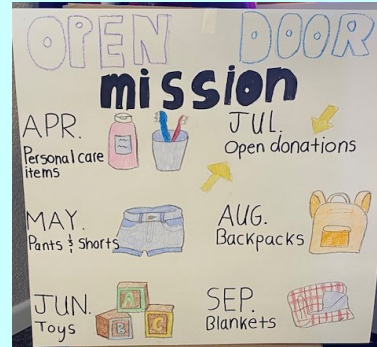 OPEN DOOR
mission
APR.
Personal care
items
MAY.
Pants & Shorts
JUN.
Toys
A
B C
JUL.
Open donations
AUG.
Backpacks
SEP.
Blankets